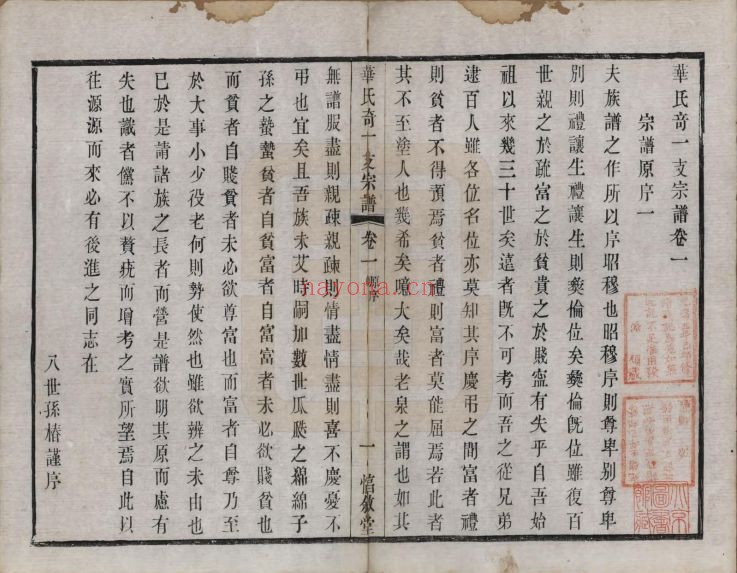 華氏奇一支宗譜卷一
宗譜原序一
夫族譜之作所以序昭穆也昭穆序則尊卑別尊卑
別則禮讓生禮讓生則彝倫位矣彝倫既位雖復百
世親之於疏富之於貧貴之於賤寧有失乎自吾始
祖以來幾三十世矣遠者既不可考而吾之從兄弟
逮百人雖各位名位亦莫知其序慶弔之間富者禮
則貧者不得預焉貧者禮則富者莫能屈焉若此者
其不至塗人也幾希矣噫大矣哉老泉之謂也如其
華氏奇一支宗譜 卷一 原序 一 惇敘堂
無譜服盡則親疎親疎則情盡情盡則喜不慶憂不
弔也宜矣且吾族未艾時嗣加數世瓜瓞之綿綿子
孫之蟄蟄貧者自貧富者自富富者未必欲賤貧也
而貧者自賤貧者未必欲尊富也而富者自尊乃至
於大事小少役老何則勢使然也雖欲辨之未由也
已於是請諸族之長者而營是譜欲明其原而慮有
失也識者儻不以贅疣而增考之實所望焉自此以
往源源而來必有後進之同志在
八世孫椿謹序
nayona.cn